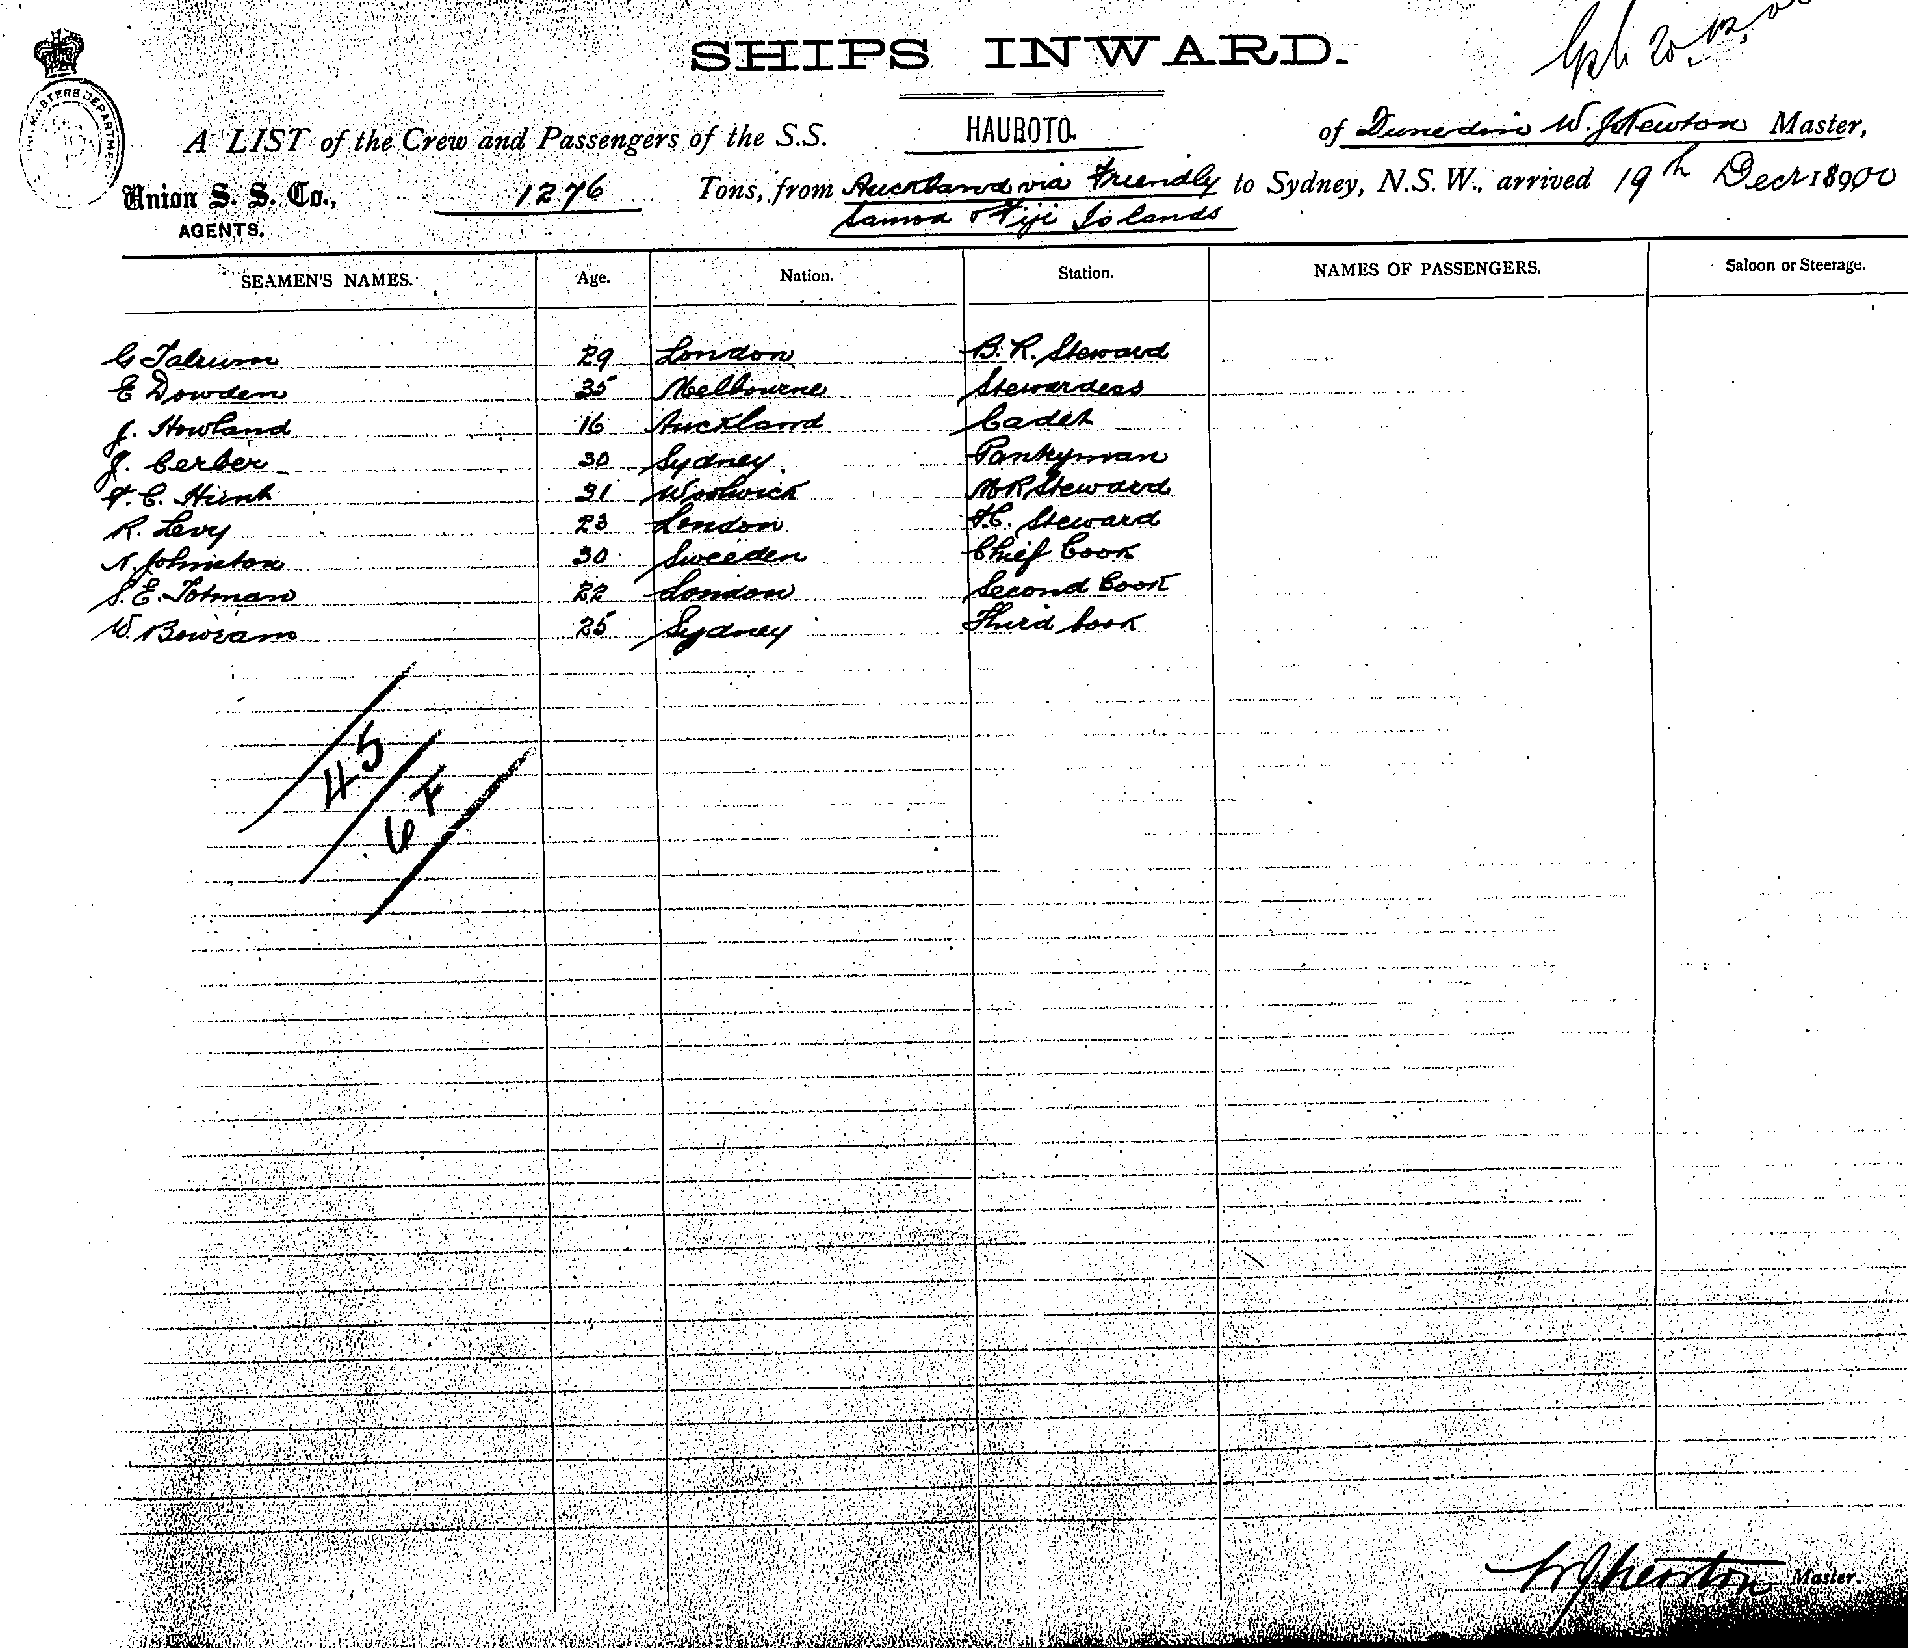 SHIPS INWARD.
20.12.00
A LIST of the Crew and Passengers of the S.S. HAUROTO. of Dunedin W. J. Newton Master,
Union S. S. Co., 1276 Tons, from Auckland via Friendly to Sydney, N.S.W., arrived 19th Decr 18900
AGENTS. Samoa & Fiji Islands
SEAMEN'S NAMES. Age. Nation. Station. NAMES OF PASSENGERS. Saloon or Steerage.
G 29 London B. R. Steward
E Dowden 35 Melbourne Stewardess
J. Howland 16 Auckland Cadet
J. Cerber 30 Sydney Pantryman
F. C. 31 Woolwick M R Steward
R. Levy 23 London F.C. Steward
Johnston 30 Sweeden Chief Cook
S. E. Totman 22 London Second Cook
W. 25 Sydney Third Cook
45
6 F
W J Newton Master.